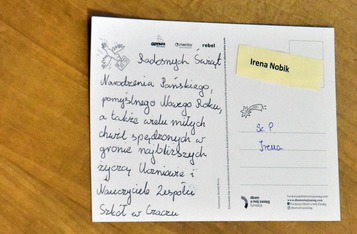 rebel
Radosnych Świąt
Narodzenia Pańskiego,
pomyślnego Nowego Roku,
a także wielu miłych
chwil spędzonych w
gronie najbliższych
życzą Uczniowie i
Nauczyciele Zespołu
Szkół w Czaczu
Irena Nobik
Sz. P
Irena